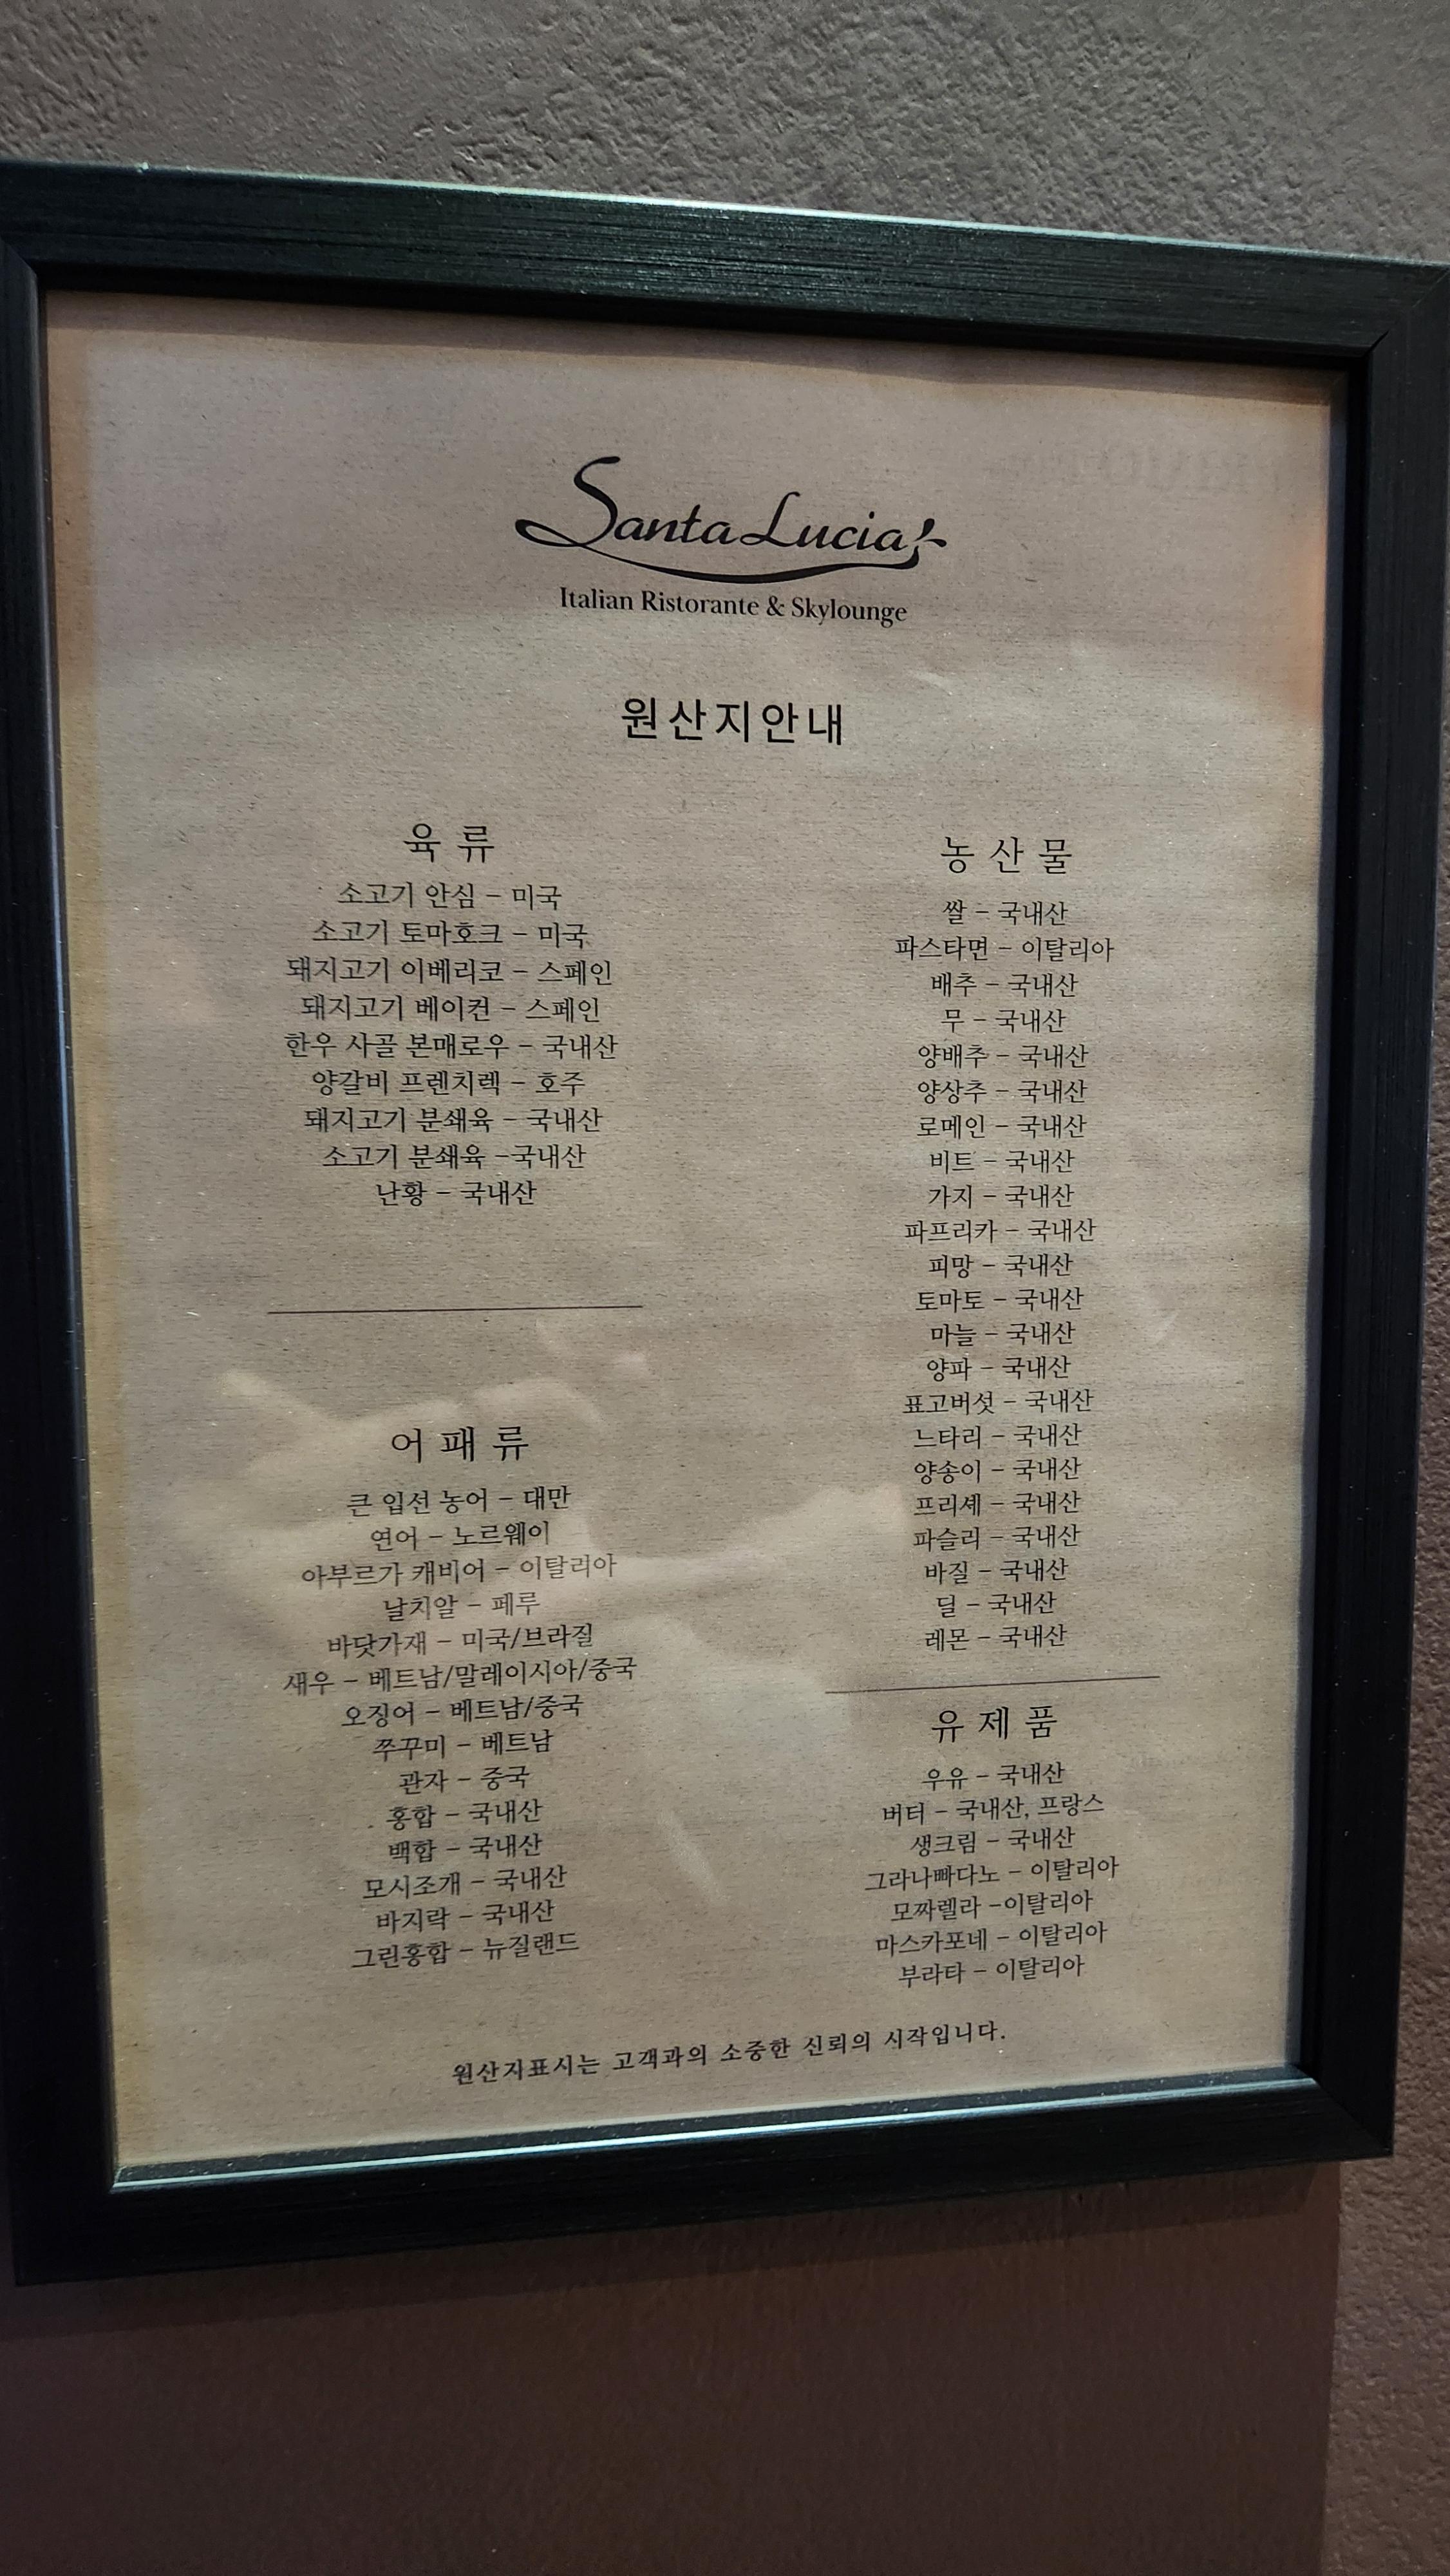 Santa Lucia
Italian Ristorante & Skylounge
원산지안내
육류
소고기 안심 - 미국
소고기 토마호크 - 미국
돼지고기 이베리코 - 스페인
돼지고기 베이컨 - 스페인
한우 사골 본매로우 - 국내산
양갈비 프렌치렉 - 호주
돼지고기 분쇄육 - 국내산
소고기 분쇄육 -국내산
난황 - 국내산
어패류
큰 입선 농어 - 대만
연어 - 노르웨이
아부르가 캐비어 - 이탈리아
날치알 - 페루
바닷가재 - 미국/브라질
새우 - 베트남/말레이시아/중국
오징어 - 베트남/중국
쭈꾸미 - 베트남
관자 - 중국
홍합 - 국내산
백합 - 국내산
모시조개 - 국내산
바지락 - 국내산
그린홍합 - 뉴질랜드
농산물
쌀 - 국내산
파스타면 - 이탈리아
배추 - 국내산
무 - 국내산
양배추 - 국내산
양상추 - 국내산
로메인 - 국내산
비트 - 국내산
가지 - 국내산
파프리카 - 국내산
피망 - 국내산
토마토 - 국내산
마늘 - 국내산
양파 - 국내산
표고버섯 - 국내산
느타리 - 국내산
양송이 - 국내산
프리셰 - 국내산
파슬리 - 국내산
바질 - 국내산
딜 - 국내산
레몬 - 국내산
유제품
우유 - 국내산
버터 - 국내산, 프랑스
생크림 - 국내산
그라나빠다노 - 이탈리아
모짜렐라 -이탈리아
마스카포네 - 이탈리아
부라타 - 이탈리아
원산지표시는 고객과의 소중한 신뢰의 시작입니다.